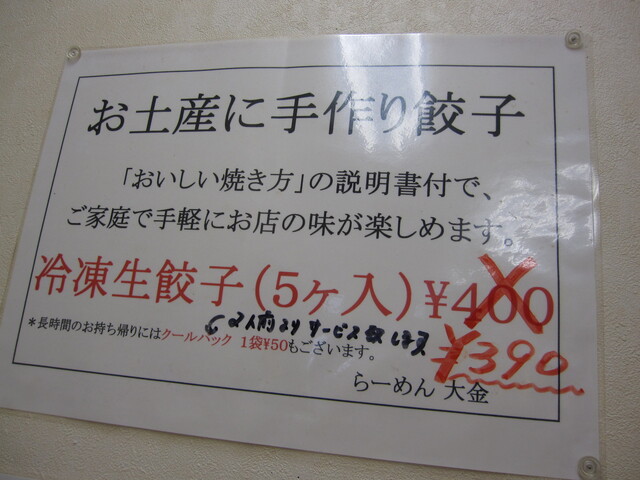 お土産に手作り餃子
「おいしい焼き方」の説明書付で、
ご家庭で手軽にお店の味が楽しめます。
冷凍生餃子(5ヶ入)¥400
¥390
2人前よりサービス致します
*長時間のお持ち帰りにはクールパック 1袋¥50もございます。
らーめん 大金